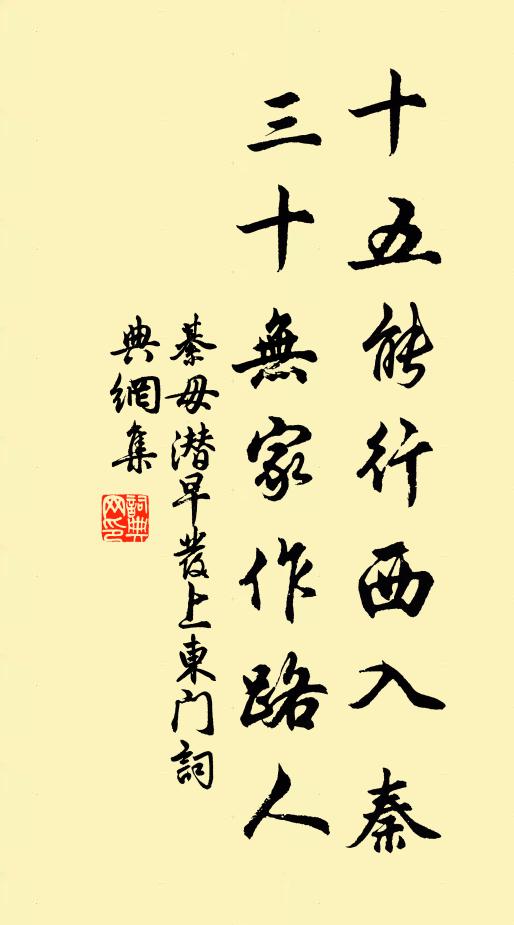 十五能行西入秦
三十無家作路人
綦毋潜早發上東門詞
典網集
詞典網印